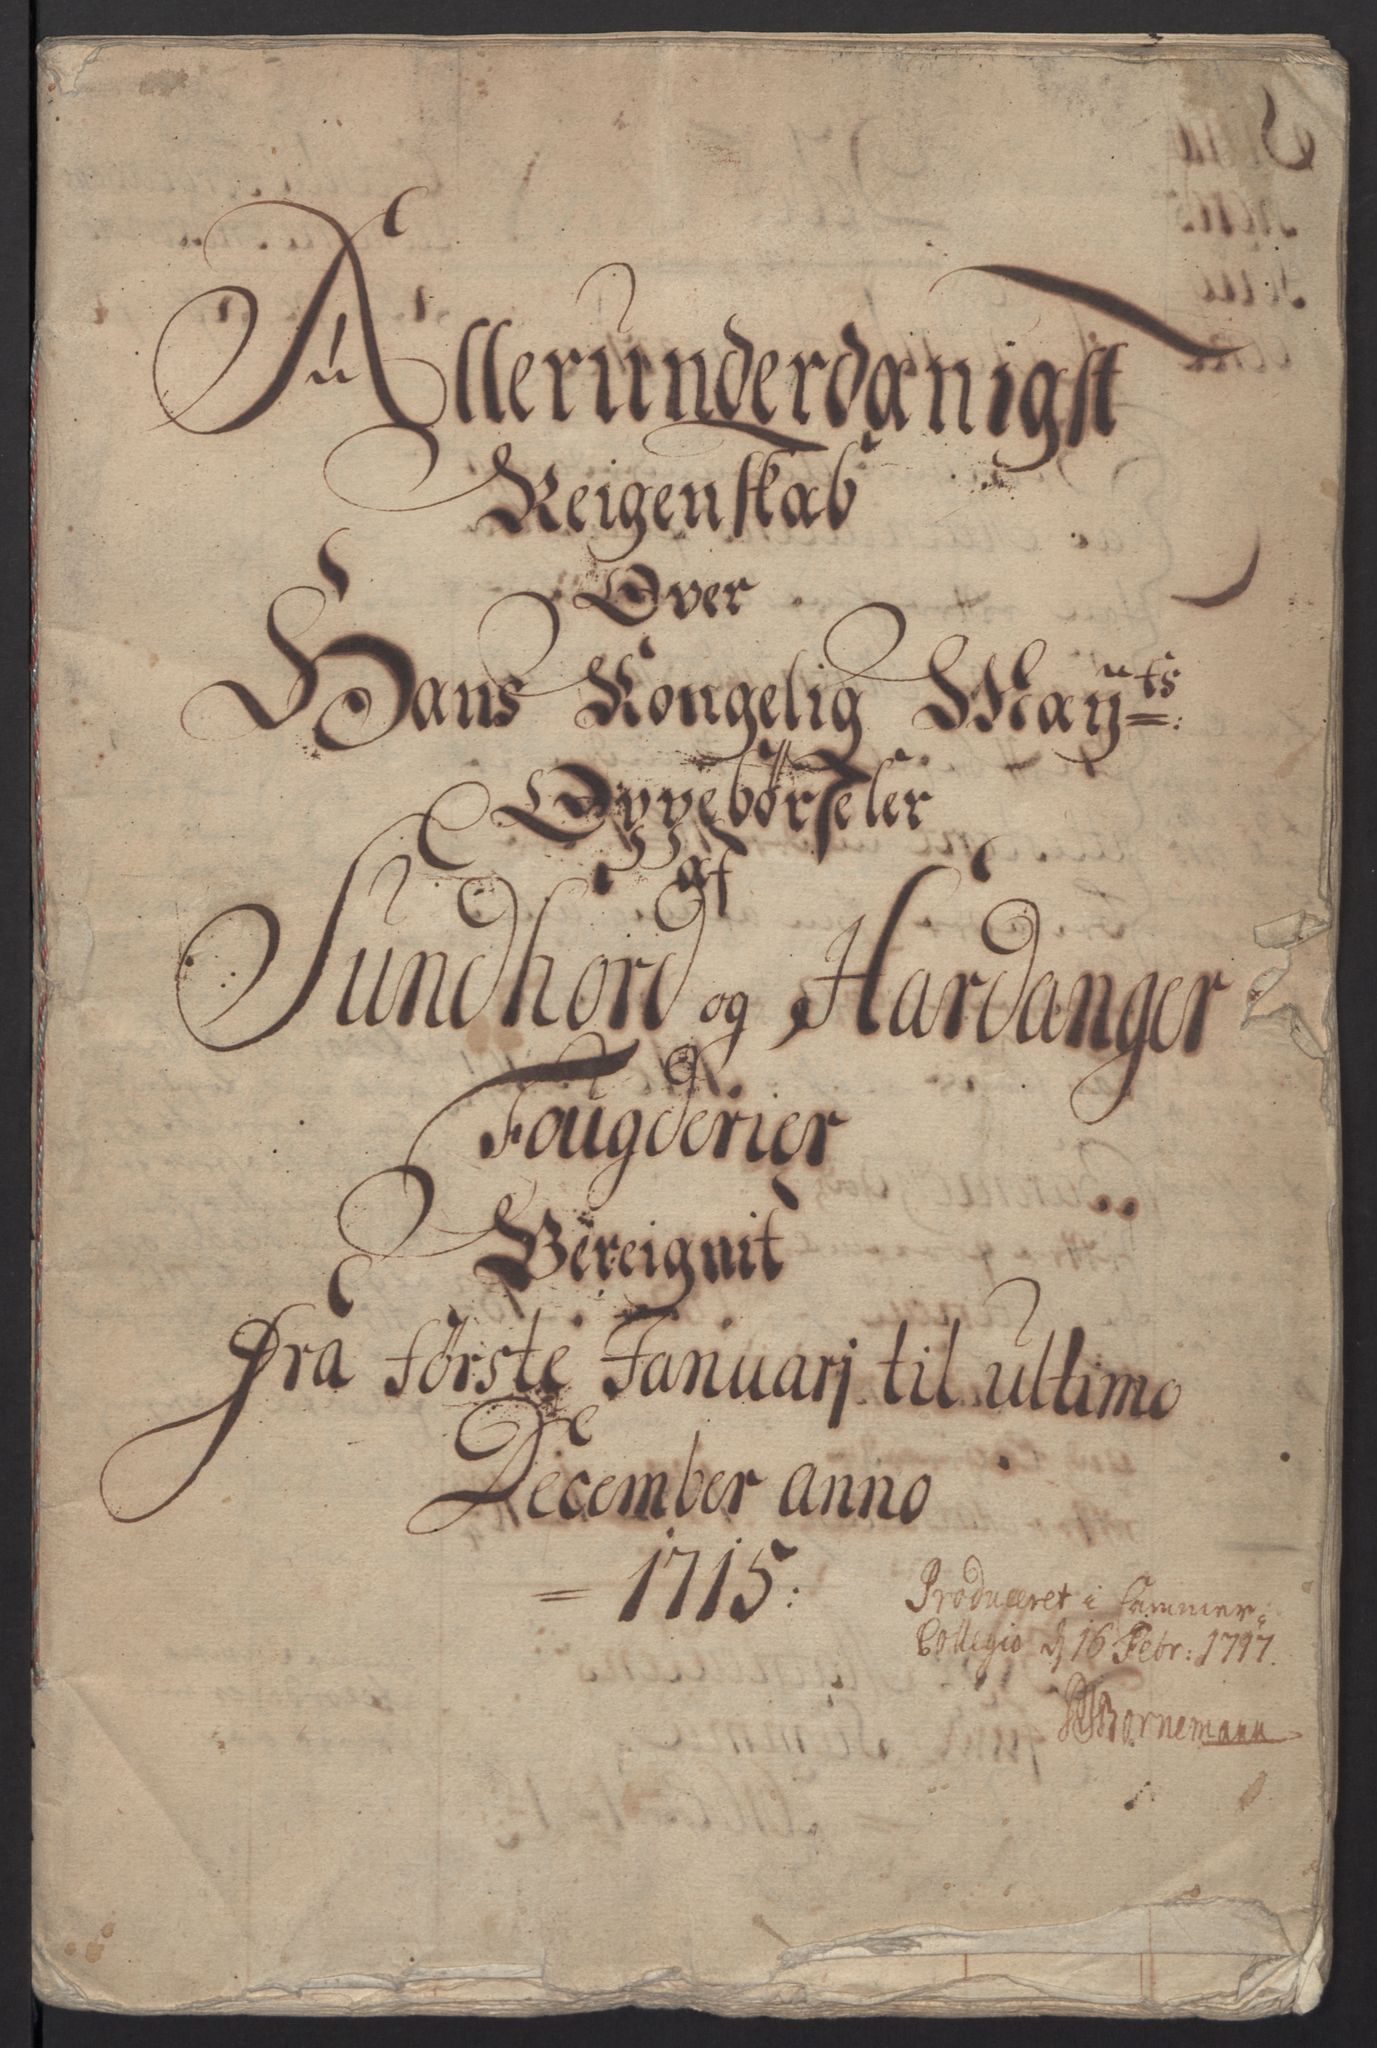 Allerunderdænigst
Reigenskab
Over
Hans Kongelig Mayts:
Oppebørseler
af
Sundhord og Hardanger
Fougderier
Bereignit
Fra første Januarj til ultimo
December anno
1715:
Produceret i Cammer=
Collegio d 16 Febr: 1717.
Bornemann